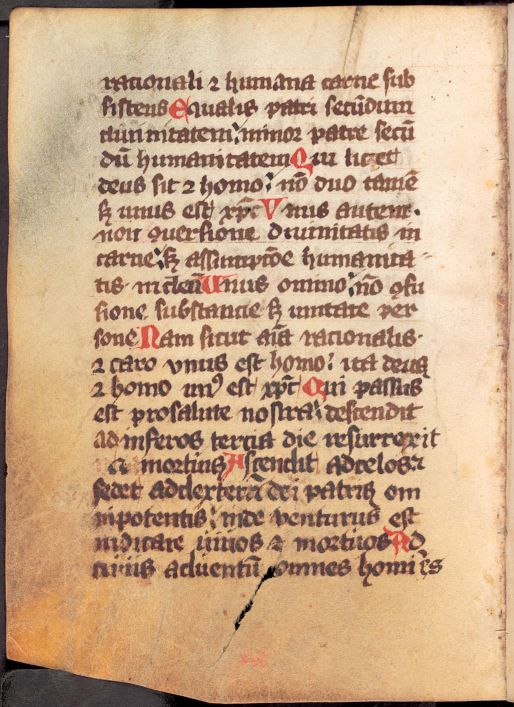 racionali ⁊ humana carne sub
sistens Equalis patri secũdum
diuinitatem: minor patre secũ
dũ humanitatem Qui licet
deus sit ⁊ homo: nõ duo tamẽ
sꝫ unus est xp̃c Vnus autem.
non ꝯuersione diuinitatis in
carne: sꝫ assumpcõe humanita
tis in deũ Vnus omnino: nõ ꝯfu
sione substancie sꝫ unitate per
sone Nam sicut aĩa racionalis.
⁊ caro vnus est homo: ita deus
⁊ homo unꝰ est xp̃c Qui passus
est pro salute nostra: descendit
ad inferos tercia die resurrexit
a mortuis Ascendit ad celos:
sedet ad dexterã dei patris om
nipotentis: inde venturus est
iudicare uiuos ⁊ mortuos Ad
cuius aduentũ omnes homĩes